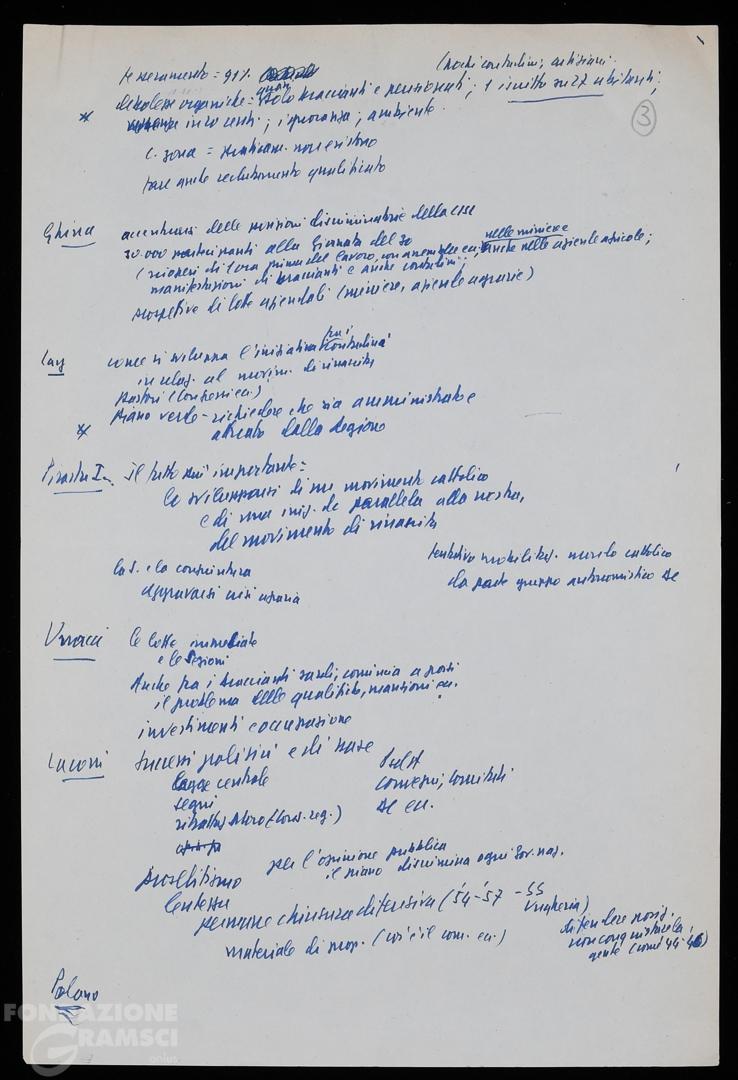 tesseramento = 91%
(pochi contadini; artigiani.
debolezze organiche = quasi solo braccianti e pensionati; 1 iscritto su 27 abitanti;
* in 20 centri; ignoranza; ambiente.
3
C. zona = praticam. non esistono
fare anche reclutamento qualificato
Ghirra accentuarsi delle posizioni discriminatorie della CISL
30.000 partecipanti alla Giornata del 30
(scioperi di 1 ora prima del lavoro, con assemblee ecc.; nelle miniere anche nelle aziende agricole;
manifestazioni di braccianti e anche contadini;
prospettive di lotte aziendali (miniere, aziende agrarie)
Lay come si sviluppa l'iniziativa fra i contadini
in relaz. al movim. di rinascita
pastori (Convegni ecc.)
* Piano verde - richiedere che sia amministrato e
attuato dalla Regione
Pirastu I. Il fatto più importante =
lo svilupparsi di un movimento cattolico
e di una iniz. dc parallela alla nostra,
del movimento di rinascita
tentativo mobilitaz. mondo cattolico
da parte gruppo autonomistico DC
la S. e la congiuntura
aggravarsi crisi agraria
Urraci le lotte immediate
e le Regioni
Anche fra i braccianti sardi, comincia a porsi
il problema delle qualifiche, mansioni ecc.
investimenti e occupazione
Laconi Successi politici e di base
legge centrale PSd'A
Segni convegni; comitati
ritratto Moro (Cons. reg.) DC ecc.
per l'opinione pubblica
il piano discrimina ogni gov. naz.
Proselitismo
lentezza
permane chiusura difensiva ('54-'57 - SS
Ungheria)
materiale di prop. (cos'è il com. ecc.)
difendere posiz.
non conquistare la
gente (com'è '44-46)
Polano
FONDAZIONE
GRAMSCI
onlus